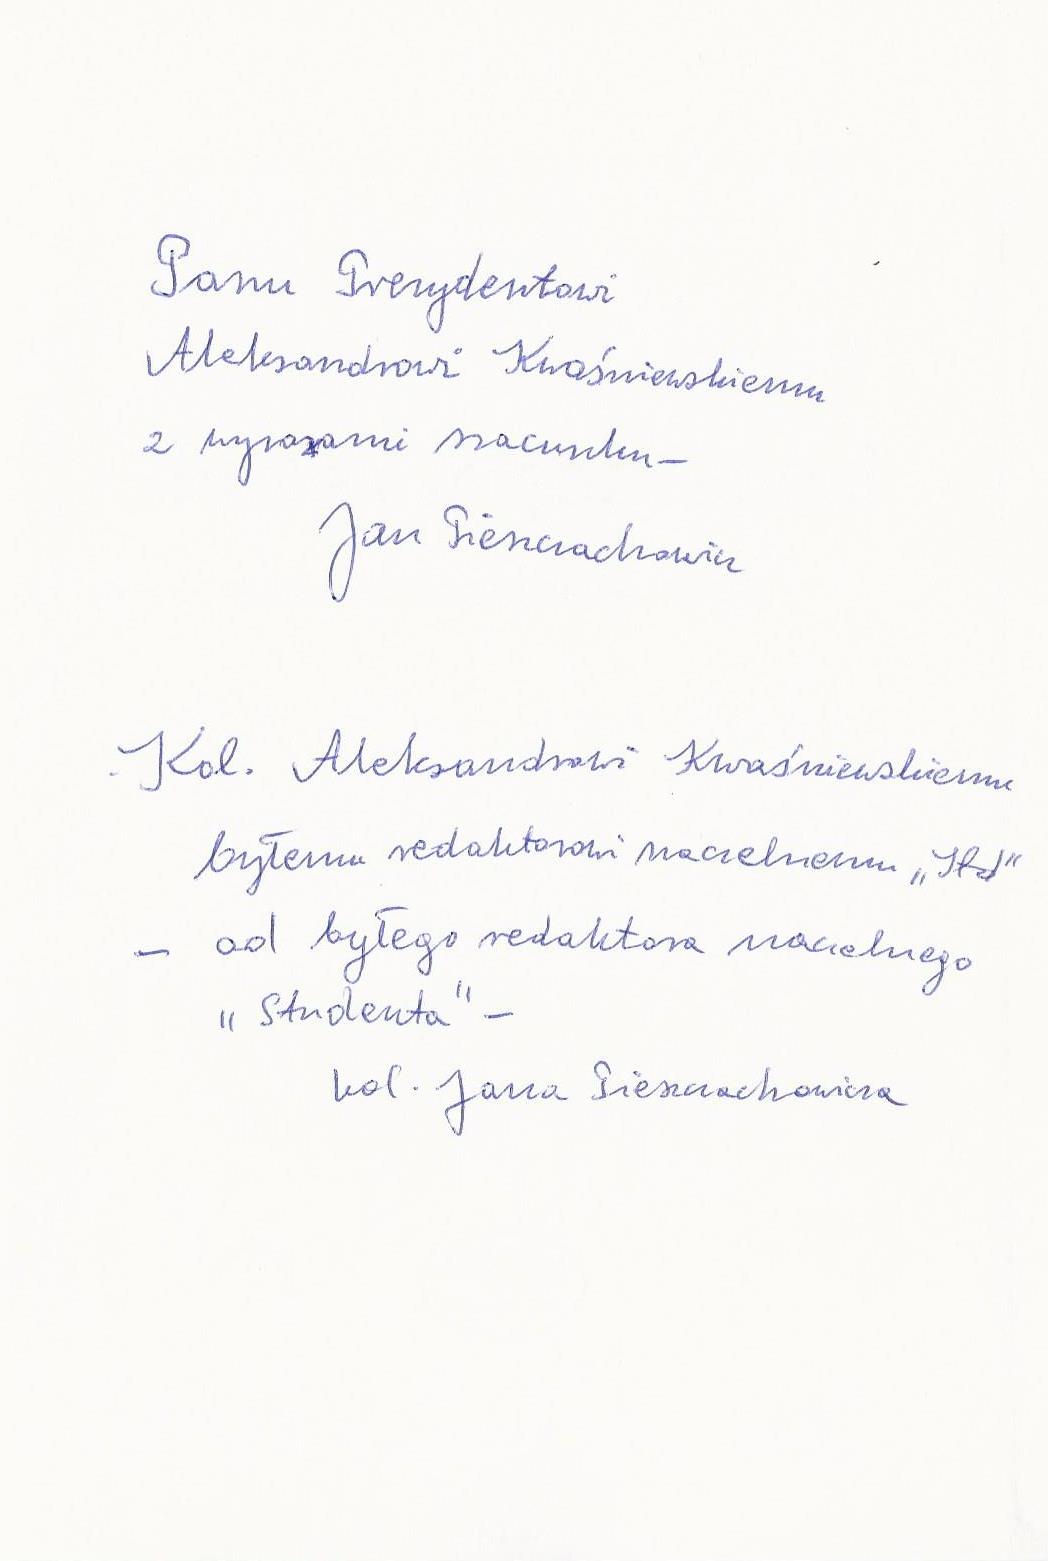 Panu Prezydentowi
Aleksandrowi Kwaśniewskiemu
z wyrazami szacunku –
Jan Pieszczachowicz
Kol. Aleksandrowi Kwaśniewskiemu
byłemu redaktorowi naczelnemu „Itd”
– od byłego redaktora naczelnego
„Studenta” –
kol. Jana Pieszczachowicza